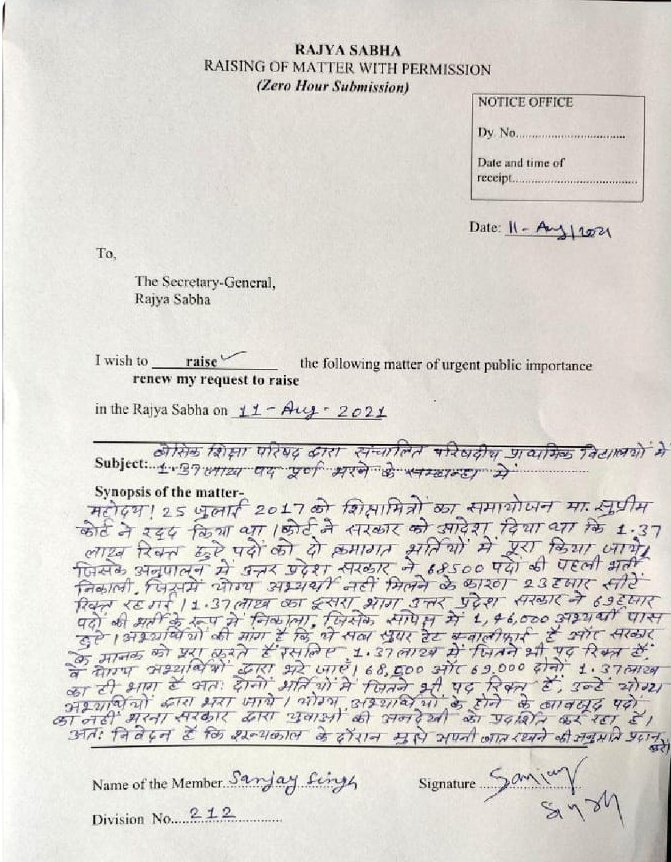 RAJYA SABHA
RAISING OF MATTER WITH PERMISSION
(Zero Hour Submission)
NOTICE OFFICE
Dy. No..............................
Date and time of
receipt..............................
Date: 11-Aug/2021
To,
The Secretary-General,
Rajya Sabha
I wish to raise ✓ the following matter of urgent public importance
renew my request to raise
in the Rajya Sabha on 11-Aug-2021
बेसिक शिक्षा परिषद द्वारा संचालित परिषदीय प्राथमिक विद्यालयों में
Subject:..1.37 लाख पद पूर्ण भरने के सम्बन्ध में
Synopsis of the matter-
महोदय! 25 जुलाई 2017 को शिक्षामित्रों का समायोजन मा. सुप्रीम
कोर्ट ने रद्द किया था। कोर्ट ने सरकार को आदेश दिया था कि 1.37
लाख रिक्त हुए पदों को दो क्रमागत भर्तियों में पूरा किया जाये,
जिसके अनुपालन में उत्तर प्रदेश सरकार ने 68500 पदों की पहली भर्ती
निकाली, जिसमें योग्य अभ्यर्थी नहीं मिलने के कारण 23 हजार सीटें
रिक्त रह गई। 1.37 लाख का दूसरा भाग उत्तर प्रदेश सरकार ने 69 हजार
पदों की भर्ती के रूप में निकाला, जिसके सापेक्ष में 1,46,000 अभ्यर्थी पास
हुए। अभ्यर्थियों की मांग है कि वे सब सुपर टेट क्वालीफाई है और सरकार
के मानक को पूरा करते हैं इसलिए 1.37 लाख में जितने भी पद रिक्त हैं
वे योग्य अभ्यर्थियों द्वारा भरे जाएँ। 68,500 और 69,000 दोनों 1.37 लाख
का ही भाग है अतः दोनों भर्तियों में जितने भी पद रिक्त हैं, उन्हें योग्य
अभ्यर्थियों द्वारा भरा जाये। योग्य अभ्यर्थियों के होने के बावजूद पदों
का नहीं भरना सरकार द्वारा युवाओं की अनदेखी को प्रदर्शित कर रहा है।
अतः निवेदन है कि शून्यकाल के दौरान मुझे अपनी बात रखने की अनुमति प्रदान
करें।
Name of the Member..Sanjay Singh Signature Sanjay
Singh
Division No.....212